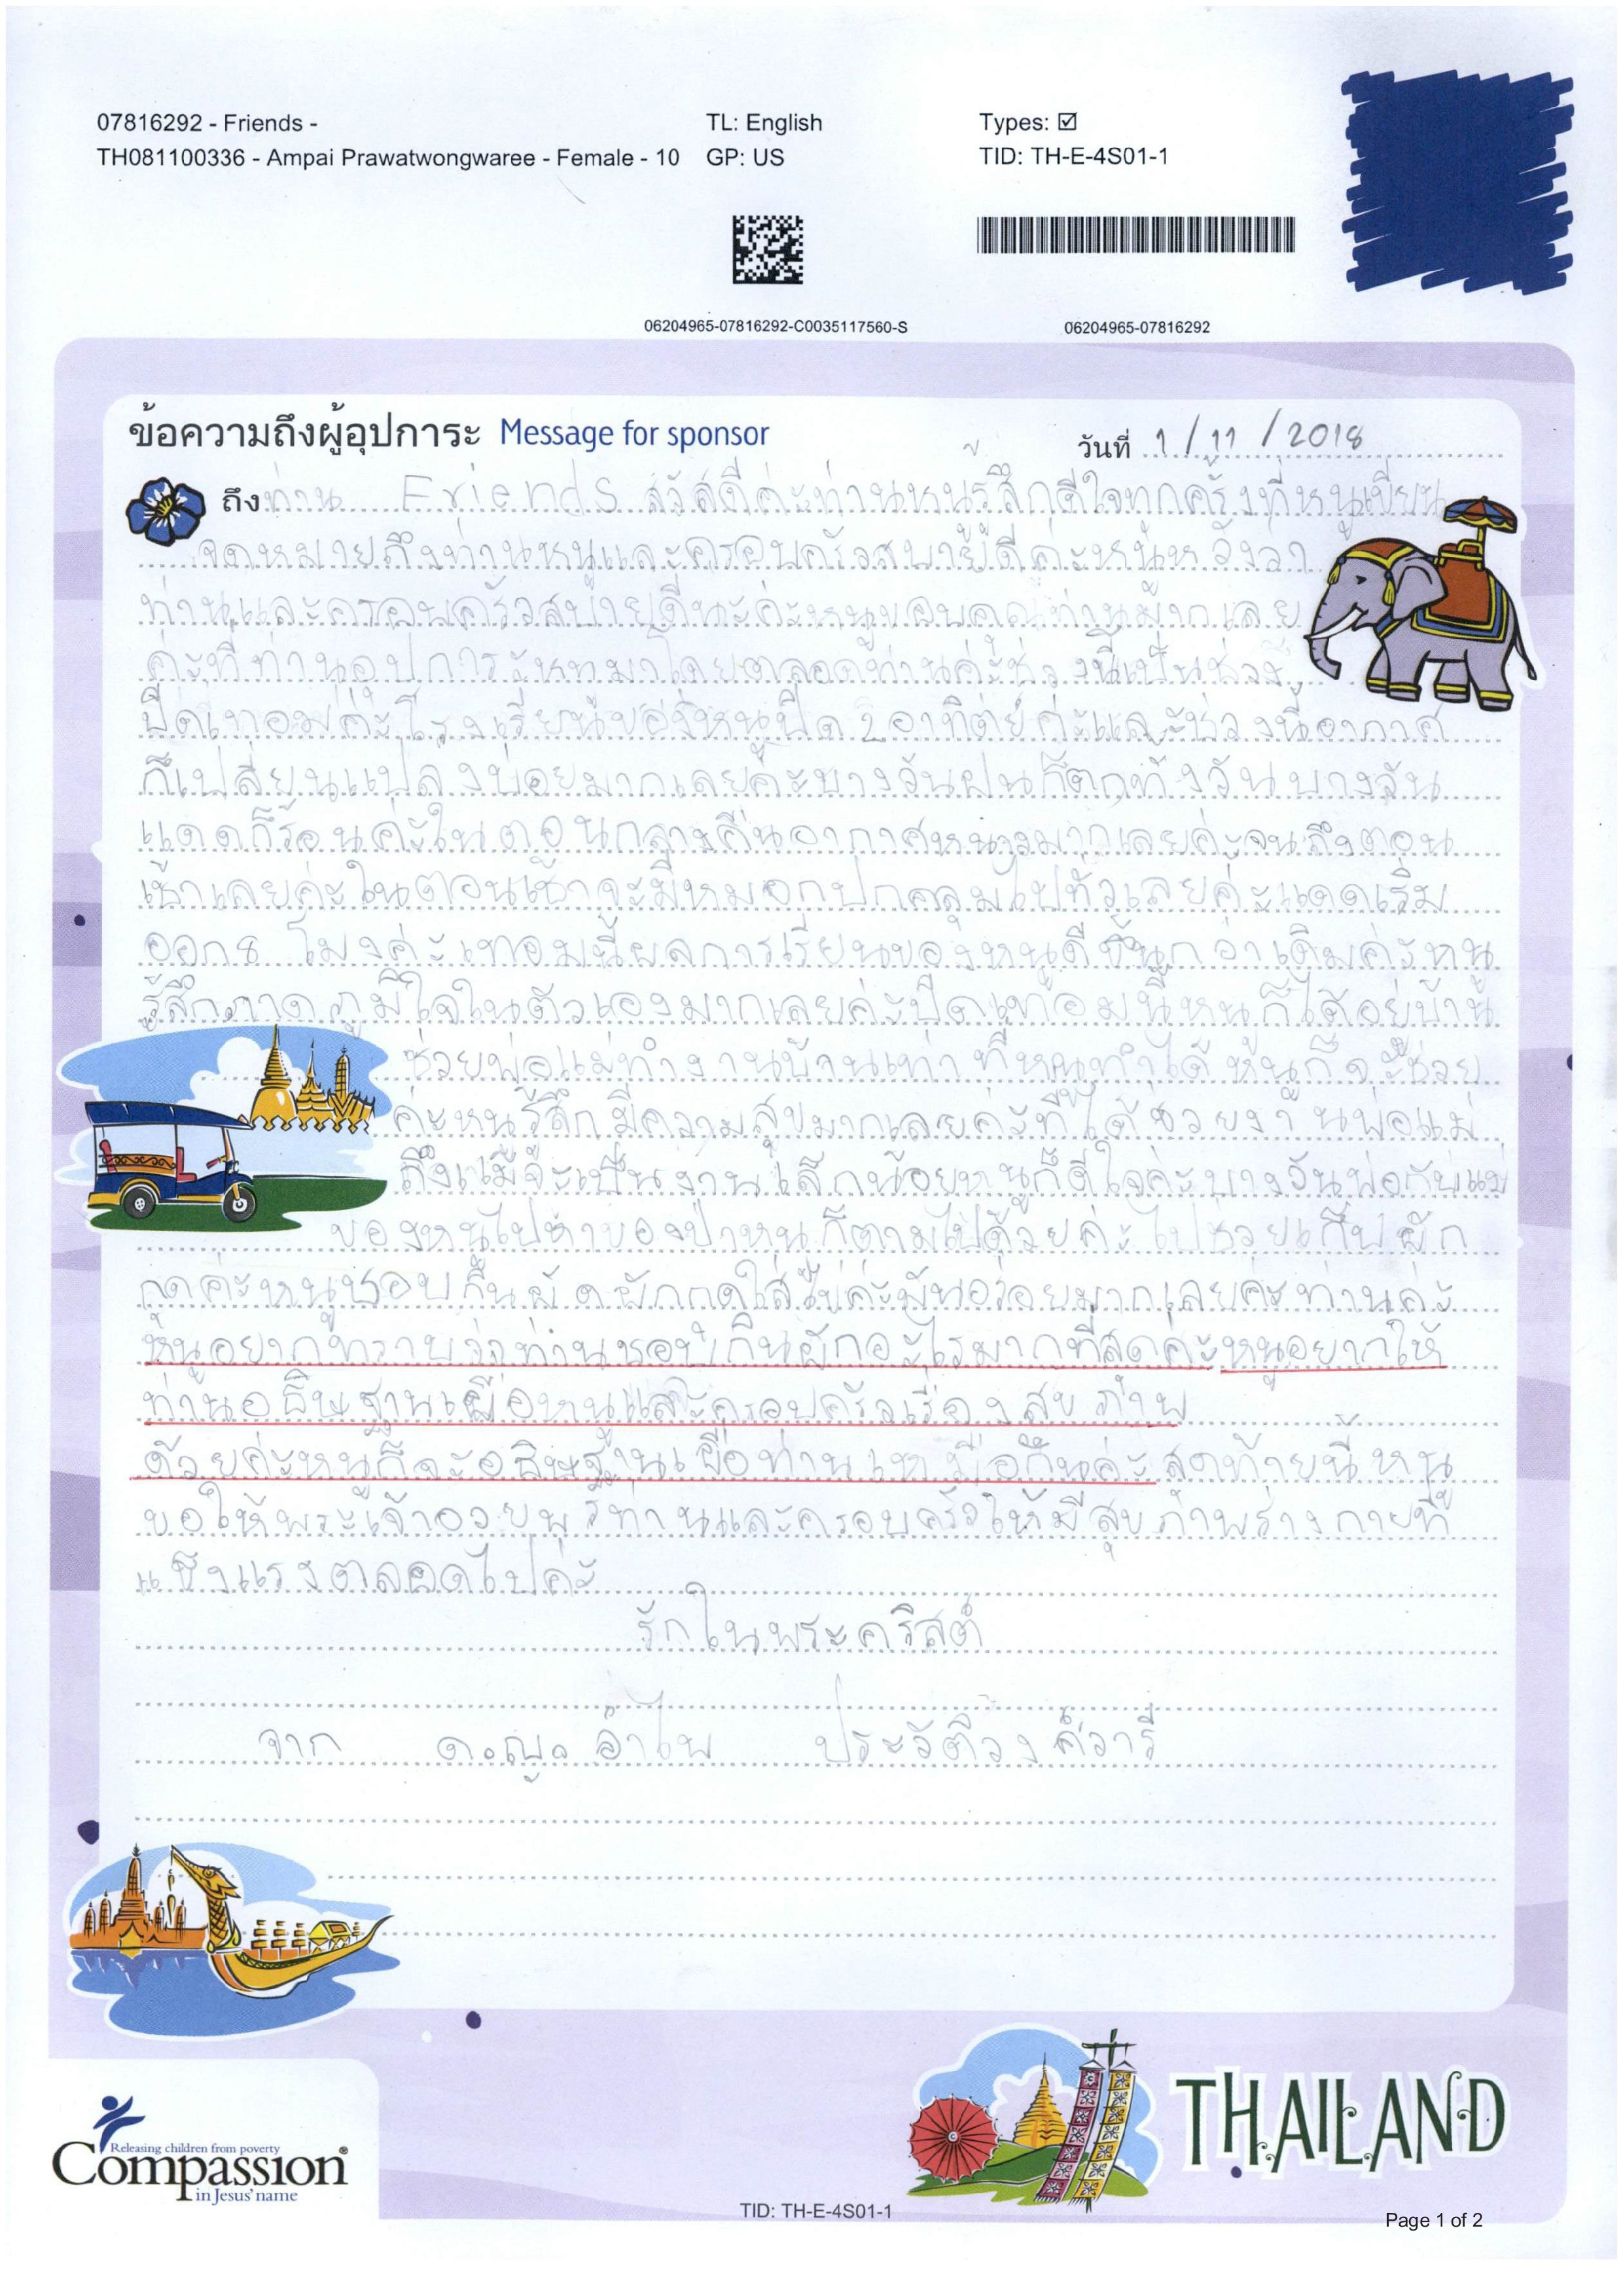 07816292 - Friends -
TL: English
Types: ☑
TH081100336 - Ampai Prawatwongwaree - Female - 10
GP: US
TID: TH-E-4S01-1
06204965-07816292-C0035117560-S
06204965-07816292
ข้อความถึงผู้อุปการะ Message for sponsor
วันที่ 1/11/2018
ถึงท่าน Friends สวัสดีค่ะท่านหนูรู้สึกดีใจทุกครั้งที่หนูเขียน
จดหมายถึงท่านหนูและครอบครัวสบายดีค่ะหนูหวังว่า
ท่านและครอบครัวสบายดีนะค่ะหนูขอบคุณท่านมากเลย
ค่ะที่ท่านอุปการะหนูมาโดยตลอดท่านค่ะช่วงนี้เป็นช่วง
ปิดเทอมค่ะโรงเรียนของหนูปิด 2 อาทิตย์ค่ะและช่วงนี้อากาศ
ก็เปลี่ยนแปลงบ่อยมากเลยค่ะบางวันฝนก็ตกทั้งวันบางวัน
แดดก็ร้อนค่ะในตอนกลางคืนอากาศหนาวมากเลยค่ะจนถึงตอน
เช้าเลยค่ะในตอนเช้าจะมีหมอกปกคลุมไปทั่วเลยค่ะแดดเริ่ม
ออก 8 โมงค่ะเทอมนี้ผลการเรียนของหนูดีขึ้นกว่าเดิมค่ะหนู
รู้สึกภาคภูมิใจในตัวเองมากเลยค่ะปิดเทอมนี้หนูก็ได้อยู่บ้าน
ช่วยพ่อแม่ทำงานบ้านเท่าที่หนูทำได้หนูก็จะช่วย
ค่ะหนูรู้สึกมีความสุขมากเลยค่ะที่ได้ช่วยงานพ่อแม่
ถึงแม้จะเป็นงานเล็กน้อยหนูก็ดีใจค่ะบางวันพ่อกับแม่
ของหนูไปหาของป่าหนูก็ตามไปด้วยค่ะไปช่วยเก็บผัก
กูดค่ะหนูชอบกินผัดผักกูดใส่ไข่ค่ะมันอร่อยมากเลยค่ะท่านค่ะ
หนูอยากทราบว่าท่านชอบกินผักอะไรมากที่สุดค่ะหนูอยากให้
ท่านอธิษฐานเผื่อหนูและครอบครัวเรื่องสุขภาพ
ด้วยค่ะหนูก็จะอธิษฐานเผื่อท่านเหมือกันค่ะสุดท้ายนี้หนู
ขอให้พระเจ้าอวยพรท่านและครอบครัวให้มีสุขภาพร่างกายที่
แข็งแรงตลอดไปค่ะ
รักในพระคริสต์
จาก ด.ญ. อำไพ ประวัติวงศ์วารี
Compassion®
Releasing children from poverty
in Jesus' name
THAILAND
TID: TH-E-4S01-1
Page 1 of 2